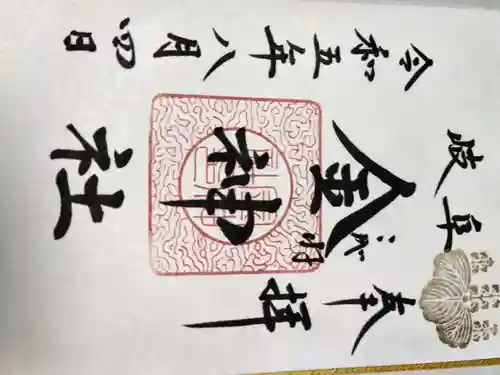 岐阜
奉拝
金神社
令和五年八月四日